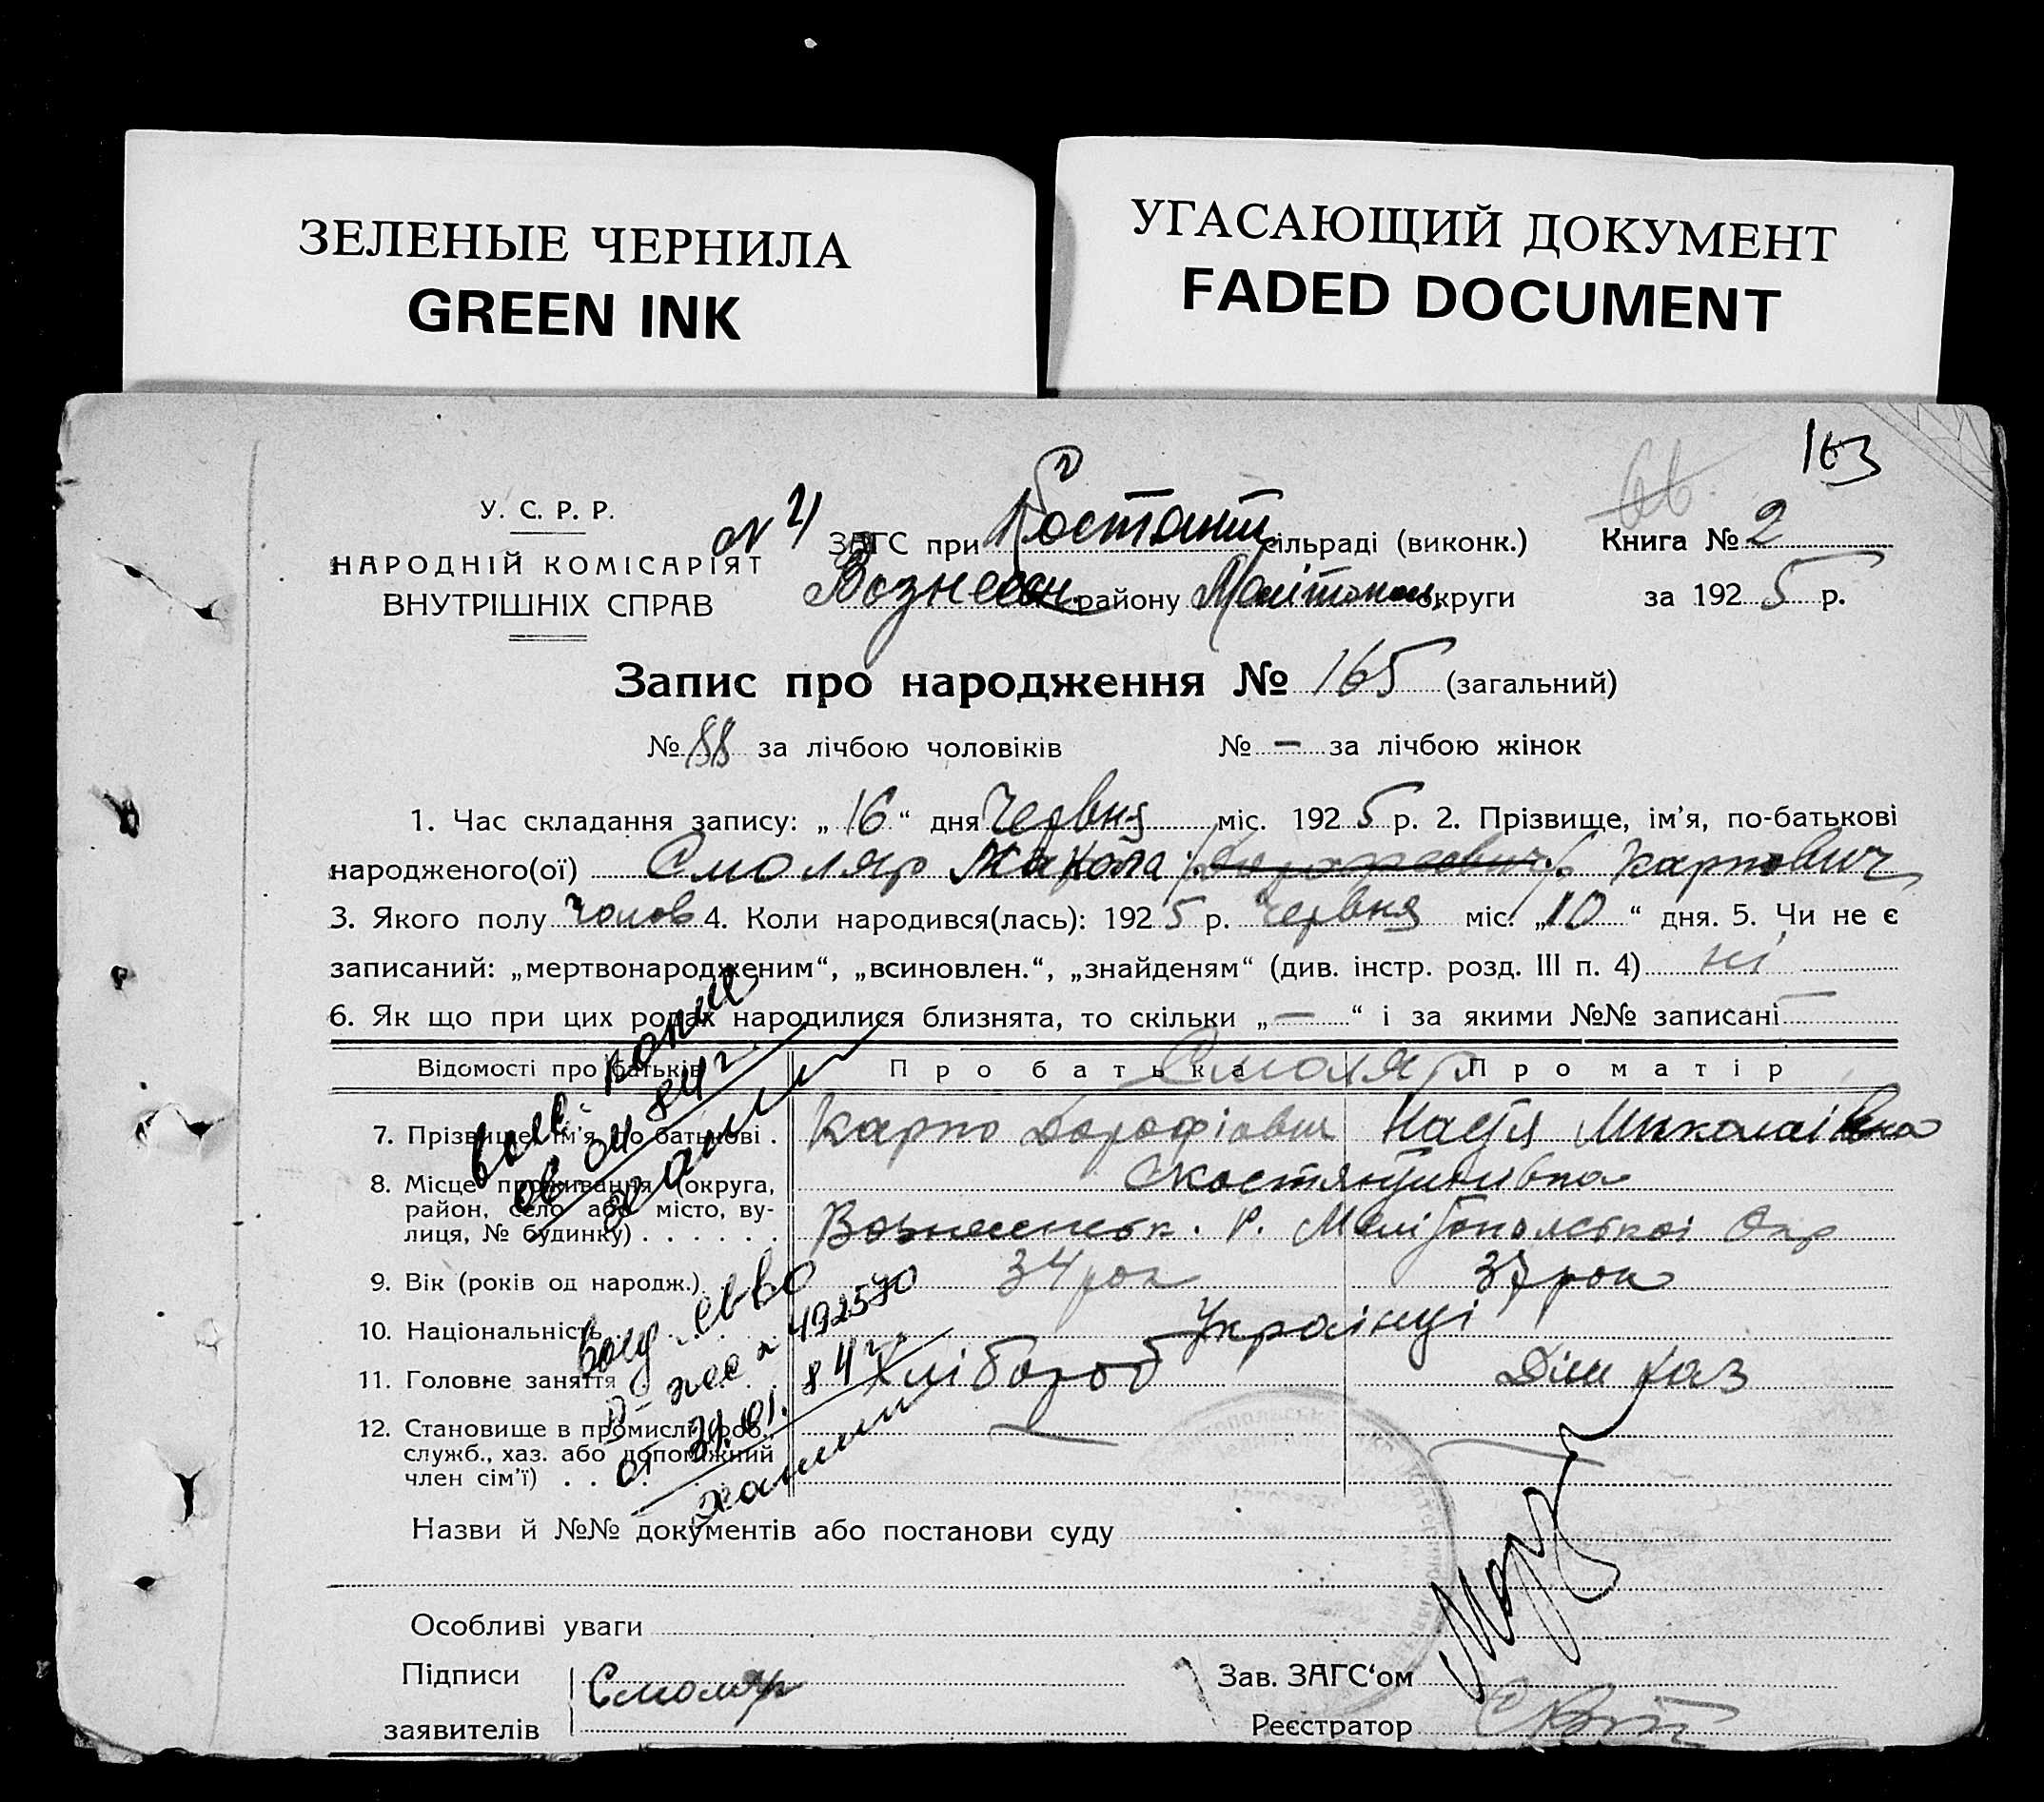 ЗЕЛЕНЫЕ ЧЕРНИЛА
GREEN INK
УГАСАЮЩИЙ ДОКУМЕНТ
FADED DOCUMENT
163
У. С. Р. Р.
НАРОДНІЙ КОМІСАРІЯТ
ВНУТРІШНІХ СПРАВ
ЗАГС при Костянт сільраді (виконк.) Книга № 2
Вознесен. району Мелітополь, округи за 1925 р.
Запис про народження № 165 (загальний)
№ 88 за лічбою чоловіків № — за лічбою жінок
1. Час складання запису: „16“ дня Червня міс. 1925 р. 2. Прізвище, ім'я, по-батькові
народженого(ої) Смоляр Микола Карпович
3. Якого полу чолов 4. Коли народився(лась): 1925 р. Червня міс. „10“ дня. 5. Чи не є
записаний: „мертвонародженим“, „всиновлен.“, „знайденям“ (див. інстр. розд. III п. 4) ні
6. Як що при цих родах народилися близнята, то скільки „—“ і за якими №№ записані —
Відомості про батьків Про батька Про матір
Смоляр
7. Прізвище, ім'я, по-батькові . Карпо Дорофіович Настя Миколаівна
8. Місце проживання (округа, район, село або місто, ву-лиця, № будинку) . . . . . . Костянтинівка
Вознесенськ. Р. Мелітопольскоі Окр
9. Вік (років од народж.) . . 34 рок 37 рок
10. Національність Украінці
11. Головне заняття Хлібороб Дім хаз
12. Становище в промислі (роб.,
служб., хаз. або допоміжний
член сім'ї) . . — —
копия
04 84 г.
492570
84 г.
Назви й №№ документів або постанови суду
Особливі уваги
Підписи
заявителів Смоляр
Зав. ЗАГС‘ом
Реєстратор